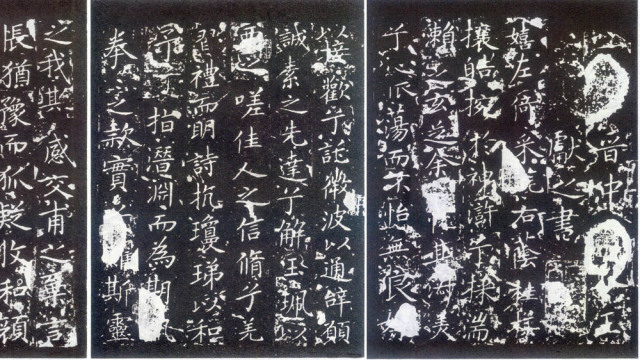 中王
獻之書
嬉左倚采旄右蔭桂旗
攘皓捥於神滸兮採湍
瀨之玄芝余淑美
兮心振蕩而不怡無良媒
以接歡兮託微波以通辭願
誠素之先達兮解玉珮以
要之嗟佳人之信脩兮羌
習禮而明詩抗瓊珶以和
予兮指潛淵而為期執
拳之款實斯靈
之我欺感交甫之棄言
悵猶豫而狐疑收和顏